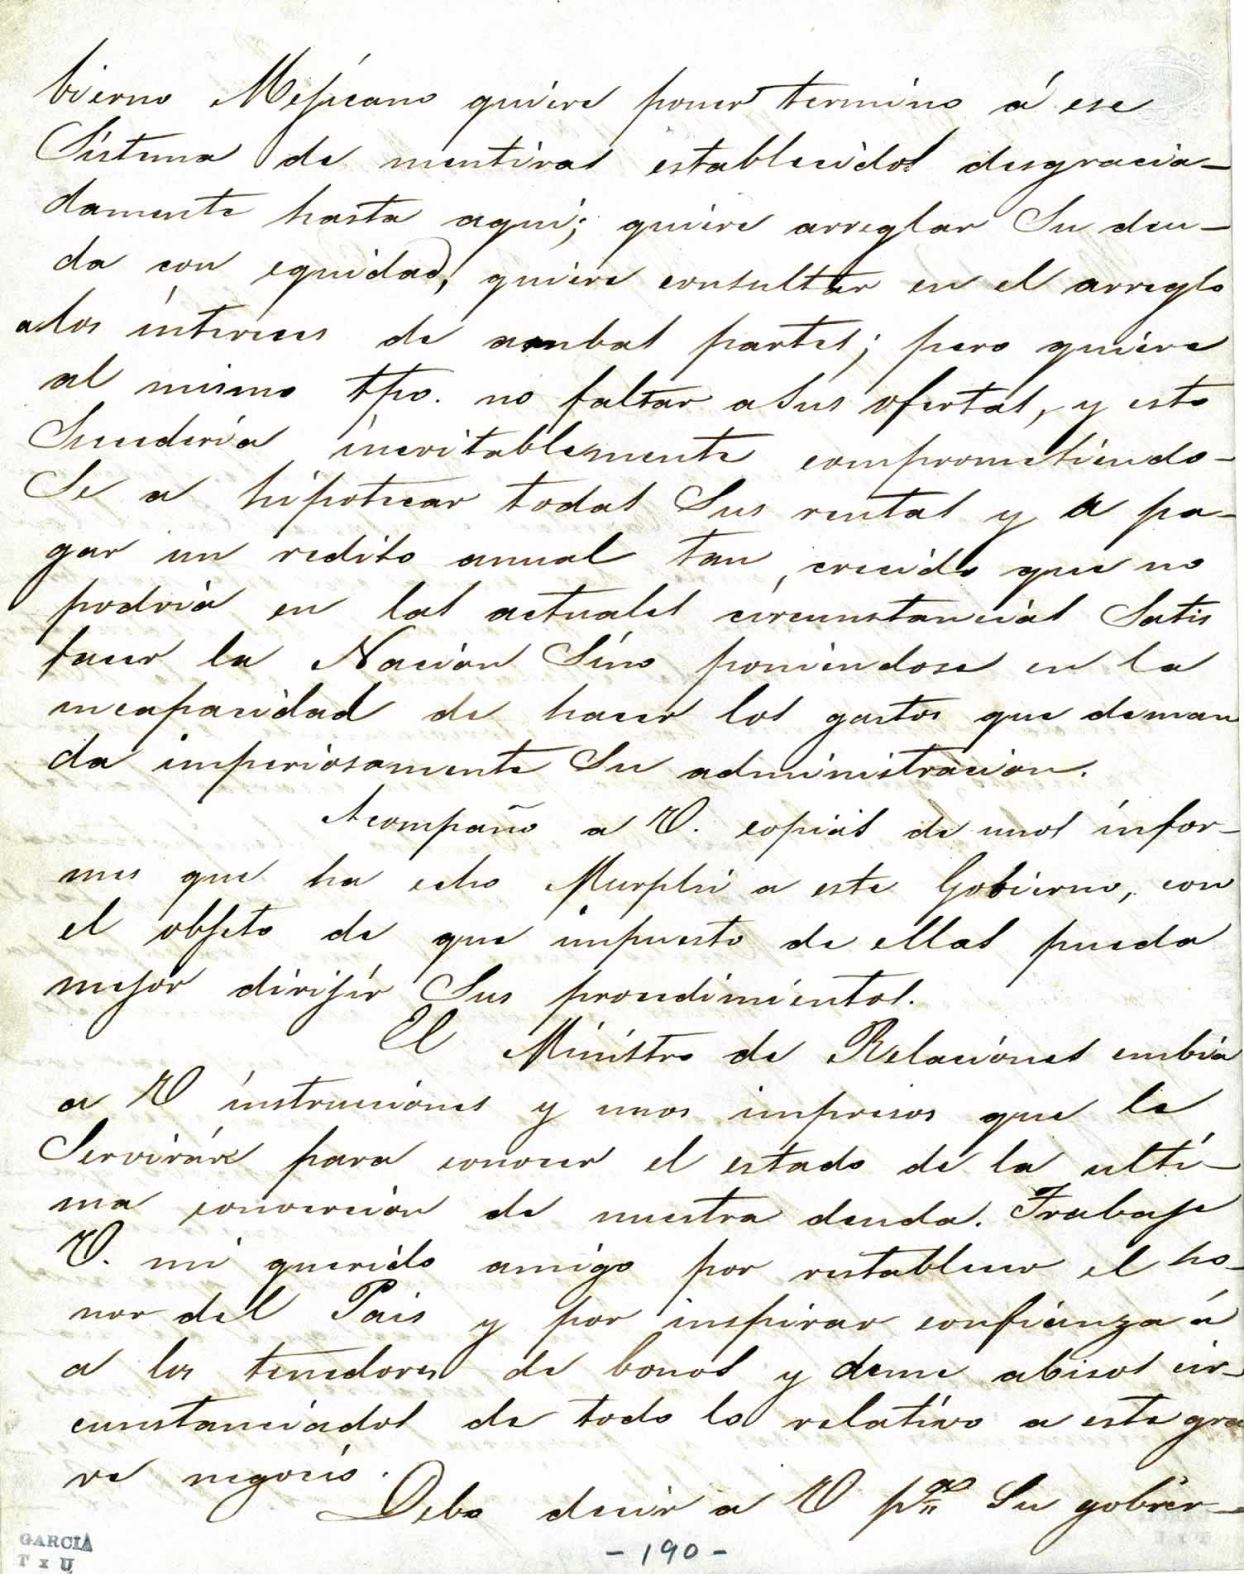 bierno Mejicano quiere poner termino á ese
Sistema de mentiras establecidos desgracia-
damente hasta aqui; quiere arreglar Su deu-
da con equidad, quiere consultar en el arreglo
a los intereses de ambas partes; pero quiere
al mismo tpo. no faltar a Sus ofertas, y esto
Sucederia inevitablemente comprometiendo-
Se a hipotecar todas Sus rentas y a pa-
gar un redito anual tan crecido que no
podria en las actuales circunstancias Satis
facer la Nación Sino poniendose en la
incapacidad de hacer los gastos que deman
da imperiosamente Su administracion.
Acompaño a V. copias de unos infor-
mes que ha echo Murphi a este Gobierno, con
el objeto de que impuesto de ellas pueda
mejor dirijir Sus procedimientos.
El Ministro de Relaciones embia
a V instrucciones y unos impresos que le
Servirán para conocer el estado de la ulti-
ma convercion de nuestra deuda. Trabaje
V. mi querido amigo por restablecer el ho-
nor del Pais y por inspirar confianza á
a los tenedores de bonos y deme abisos cir-
cunstanciados de todo lo relativo a este gra
ve negocio.
Debo decir a V pª Su gobier-
GARCIA
T x U
-190-